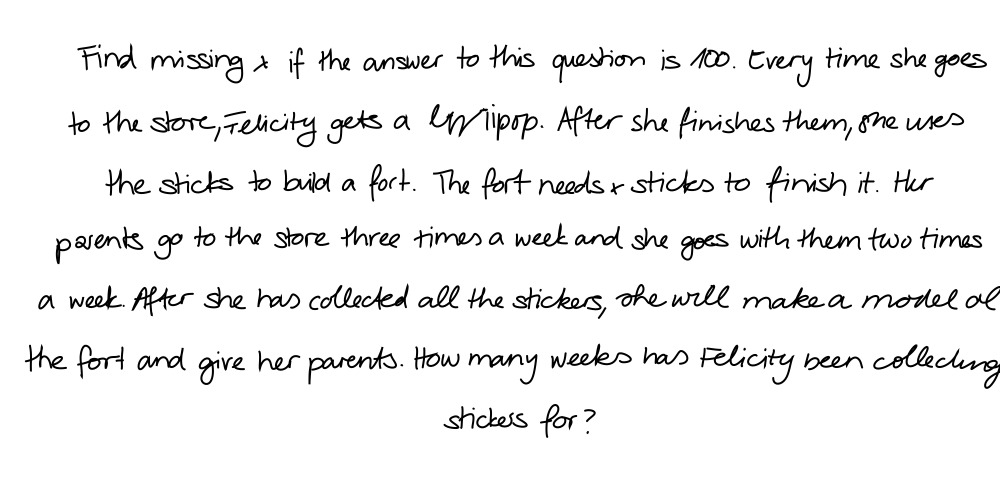 Find missing x if the answer to this question is 100. Every time she goes
to the store, Felicity gets a lollipop. After she finishes them, she uses
the sticks to build a fort. The fort needs x sticks to finish it. Her
parents go to the store three times a week and she goes with them two times
a week. After she has collected all the stickers, she will make a model of
the fort and give her parents. How many weeks has Felicity been collecting
stickers for?